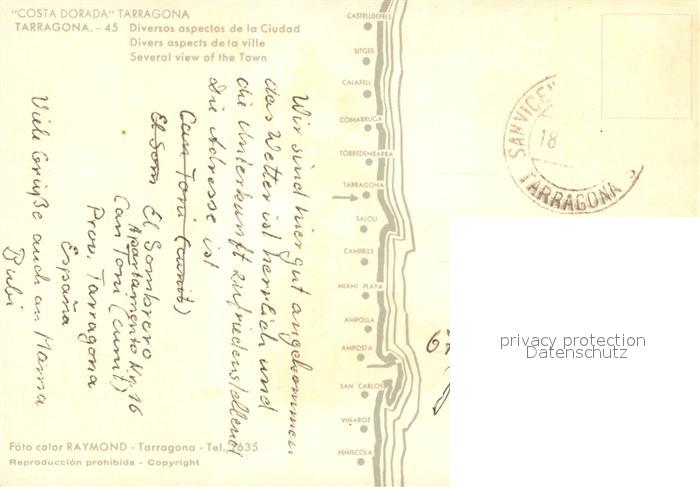 "COSTA DORADA" TARRAGONA
TARRAGONA. - 45 Diversos aspectos de la Ciudad
Divers aspects de la ville
Several view of the Town
Wir sind hier gut angekommen
das Wetter ist herrlich und
die Unterkunft zufriedenstellend
Die Adresse ist
Can Toni (cunit)
El Som
El Sombrero
Apartamento Nr. 16
Can Toni (cunit)
Prov. Tarragona
España
Viele Grüße auch an Mama
Bubi
Fóto color RAYMOND - Tarragona - Tel. 2635
Reproducción prohibida - Copyright
CASTELLDEFELS
SITGES
CALAFELL
COMARRUGA
TORREDEMBARRA
TARRAGONA
SALOU
CAMBRILS
MIAMI PLAYA
AMPOLLA
AMPOSTA
SAN CARLOS
VINAROZ
PEÑISCOLA
SAN VICEN
18
TARRAGONA
privacy protection
Datenschutz